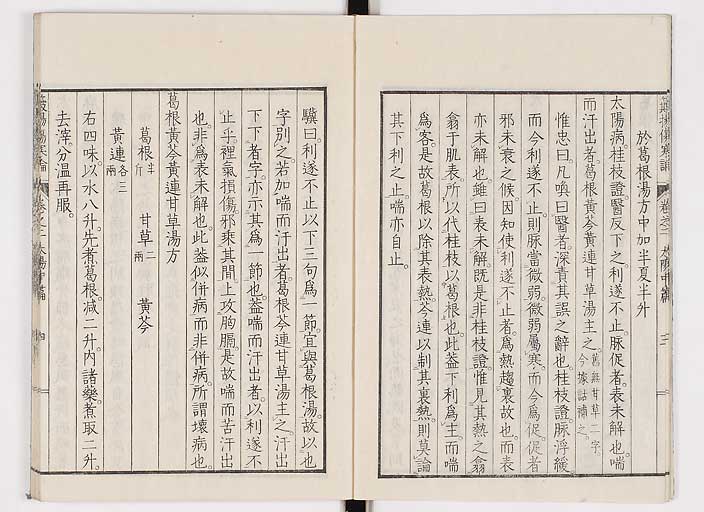 於葛根湯方中加半夏半升
太陽病桂枝證醫反下之利遂不止脉促者表未解也喘
而汗出者葛根黃芩黃連甘草湯主之舊無甘草二字今據詁補之
惟忠曰凡喚曰醫者深責其誤之辭也桂枝證脉浮緩
而今利遂不止則脉當微弱微弱屬寒而今爲促促者
邪未衰之候因知使利遂不止者爲熱趨裏故也而表
亦未解也雖曰表未解既是非桂枝證惟見其熱之翕
翕于肌表所以代桂枝以葛根也此葢下利爲主而喘
爲客是故葛根以除其表熱芩連以制其裏熱則莫論
其下利之止喘亦自止
太陽中篇
三
驥曰利遂不止以下三句爲一節宜與葛根湯故以也
字別之若加喘而汗出者葛根芩連甘草湯主之汗出
下下者字亦示其爲一節也葢喘而汗出者以利遂不
止乎裡氣損傷邪乘其間上攻胸膈是故喘而苦汗出
也非爲表未解也此葢似併病而非併病所謂壞病也
葛根黃芩黃連甘草湯方
葛根半斤 甘草二兩 黃芩
黃連各三兩
右四味以水八升先煮葛根減二升內諸藥煮取二升
去滓分溫再服
太陽中篇
四